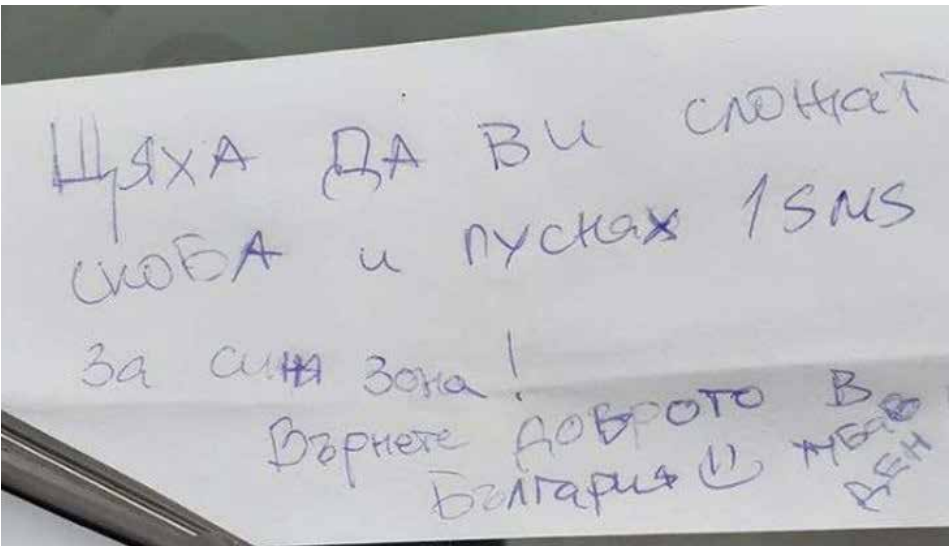 ЩЯХА ДА ВИ СЛОЖАТ
СКОБА и ПУСНАХ 1 SMS
За синя зона!
Върнете ДОБРОТО В
България
ХУБАВ
ДЕН